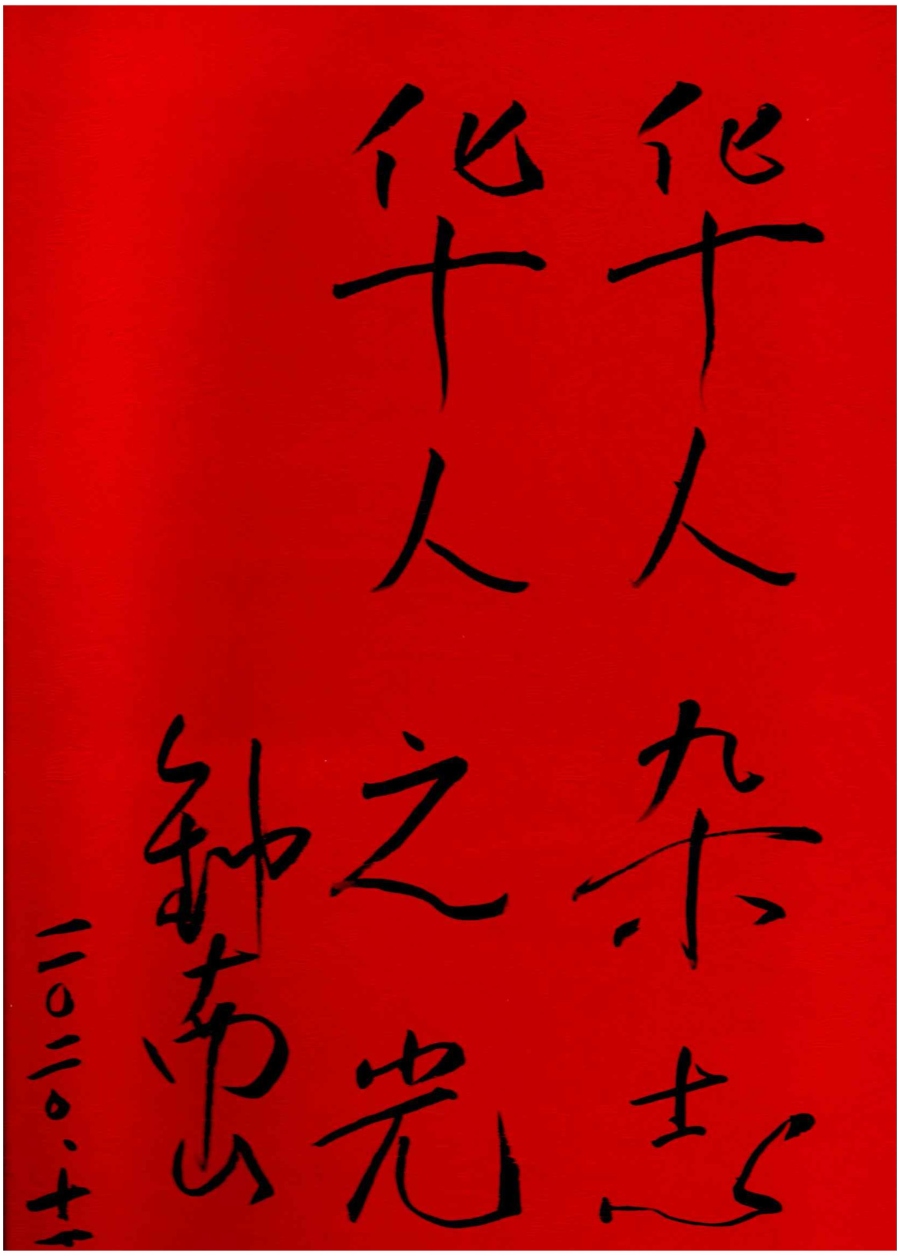 华人杂志
华人之光
钟南山
二〇二〇.十一